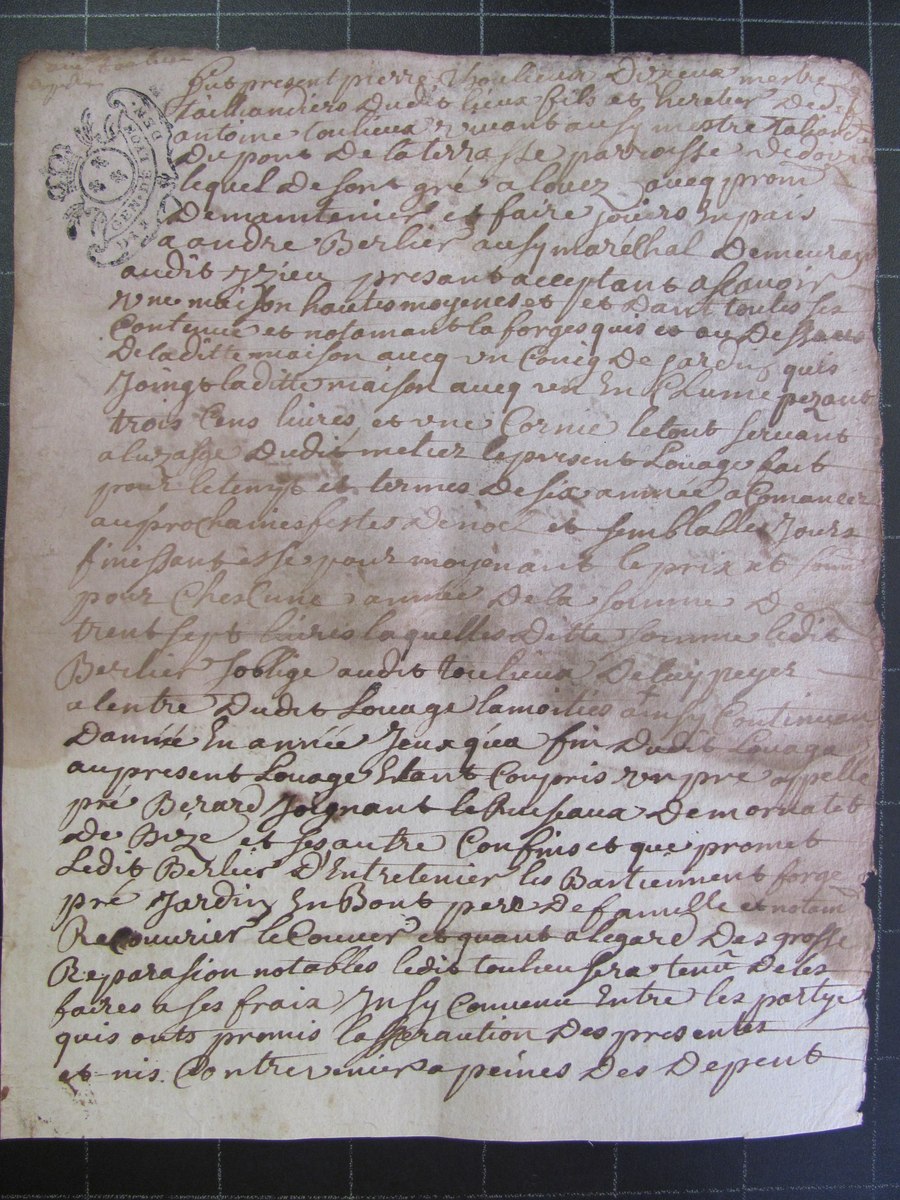 GEN DE LION
fut present pierre thoulieux Dizieux mestre
Tailliandiers Dudit lieux fils et heretier De
antoine toulieux vivant ausy mestre
Du pont De la terrasse parroisse De doizi
lequel De sont gré a louez avecq prom
De maintenier et faire joiiers En pais
a andre Berlier ausy maréchal Demeurant
audit yzieu presant acceptant asavoir
vne maison hautes moyenes et Dant toutes ses
Contenue et notamant la forges quis est au Dessous
De laditte maison avecq vn Coing De Jardin quis
Joingt laditte maison avecq vn Enclume pezant
trois Cens livres et vne Cornie le tout servant
a luzasge Dudit metier le present Louage fait
pour le temps et termes De six année a Comancer
au prochaines festes De noel et semblables Jours
finissant esse pour moyenant le prix et somm
pour Chescune année De la somme De
trent sept livres laquelles Ditte somme ledit
Berlier soblige audit toulieux De luy peyer
a lentre Dudit Louage la moities ainsy Continuan
Dannée En année Jeusqua fin Dudit Louage
au present Louage Estant Conpris vn pre appelle
pré Berard Joignant le Ruiseaux De mornatet
De Bize et ses autre Confins et que promet
Ledit Berlier D'Entretenier les Bastiement forge
pré Jardin En Bont pere De famille et notam
Recouvrier le Couver et quant a legard Des grosse
Reparasion notables ledit toulieu sera tenu De les
faires a ses frais Insy Convenu Entre les partye
quis onts promis Des presentes
et nis Contrevenier a peines Des Depent